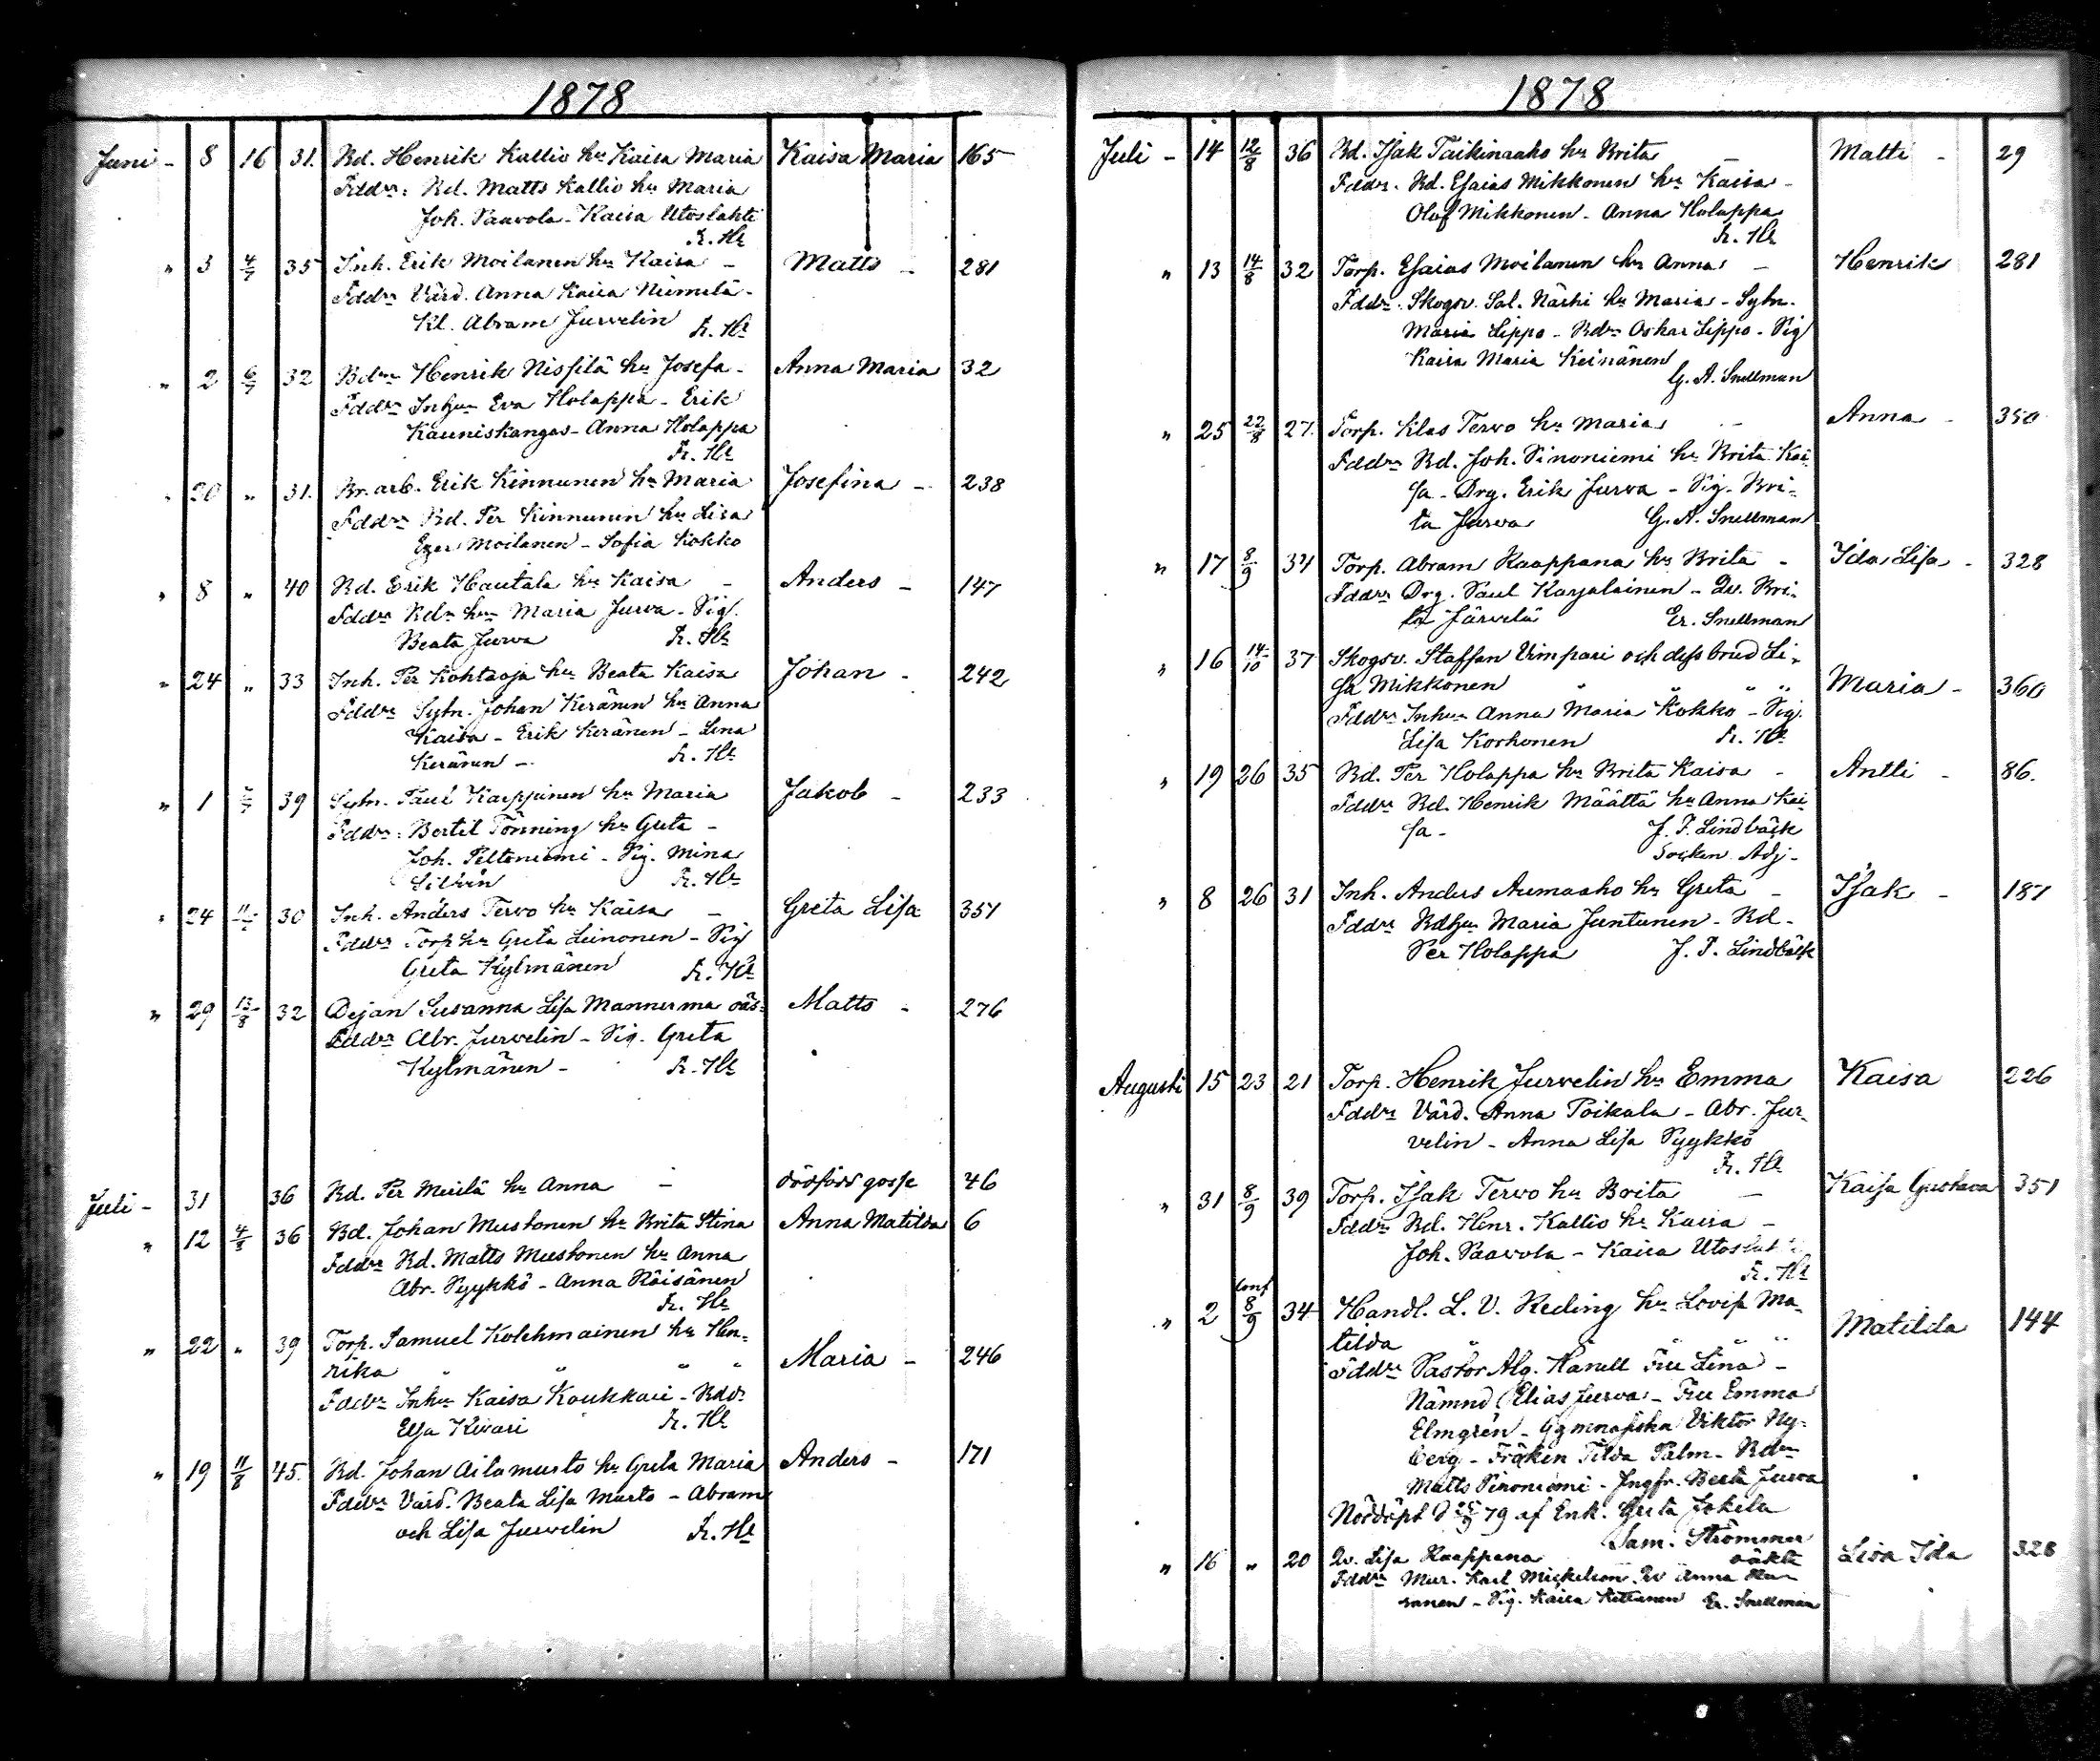 1878
Juni - 8 16 31. Bd. Henrik Kallio hu Kaisa Maria Kaisa Maria 165
Fddr: Bd. Matts Kallio hu Maria
Joh. Paavola - Kaisa Utoslahti
Fr. Hl
" 3 4/7 35 Inh. Erik Moilanen hu Kaisa - Matts - 281
Fddr Värd. Anna Kaisa Niemelä -
Kl. Abram Jurvelin Fr. Hl
" 2 6/7 32 Bdm Henrik Nissilä hu Josefa - Anna Maria 32
Fddr Inhu Eva Holappa - Erik
Kauniskangas - Anna Holappa
Fr. Hl
" 20 " 31. Br. arb. Erik Kinnunen hu Maria Josefina - 238
Fddr Bd. Per Kinnunen hu Lisa
Moilanen - Sofia Kokko
" 8 " 40 Bd. Erik Hautala hu Kaisa - Anders - 147
Fddr Bdn hu Maria Jurva - Pig.
Beata Jurva Fr. Hl
" 24 " 33 Inh. Per Kohtaoja hu Beata Kaisa Johan - 242
Fddr Sytn. Johan Keränen hu Anna
Kaisa - Erik Keränen - Lena
Keränen - Fr. Hl
" 1 39 Sytn. Paul Karppinen hu Maria Jakob - 233
Fddr: Bertil Tönning hu Greta -
Joh. Peltoniemi - Pig. Mina
Fr. Hl
" 24 30 Inh. Anders Tervo hu Kaisa - Greta Lisa 351
Fddr Torp hu Greta Leinonen - Pig
Greta Kylmänen Fr. Hl
" 29 13/8 32 Dejan Susanna Lisa Mannerma oäs= Matts - 276
Fddr Abr. Jurvelin - Pig. Greta
Kylmänen - Fr. Hl
Juli - 31 36 Bd. Per Merilä hu Anna - dödfödd gosse 46
" 12 4/8 36 Bd. Johan Mustonen hu Brita Stina Anna Matilda 6
Fddr Bd. Matts Mustonen hu Anna
Abr. Pyykkö - Anna Röisänen
Fr. Hl
" 22 " 39 Torp. Samuel Kolehmainen hu Hen=
rika " " " " Maria - 246
Fddr Inhu Kaisa Koukkari - Bddr
Elsa Kivari Fr. Hl
" 19 11/8 45. Bd. Johan Aitamurto hu Greta Maria Anders - 171
Fddr Värd. Beata Lisa Murto - Abram
och Lisa Jurvelin Fr. Hl
1878
Juli - 14 12/8 36 Bd. Isak Taikinaaho hu Brita - Matti - 29
Fddr. Bd. Esaias Mikkonen hu Kaisa -
Olof Mikkonen - Anna Holappa
Fr. Hl
" 13 14/8 32 Torp. Esaias Moilanen hu Anna - Henrik 281
Fddr. Skogv. Sal. Närhi hu Maria - Sytn.
Maria Lippo - Bdr Oskar Lippo - Pig
Kaisa Maria Keinänen
G. A. Snellman
" 25 22/8 27. Torp. Klas Tervo hu Maria - Anna - 350
Fddr Bd. Joh. Pinoniemi hu Brita Kai=
sa - Drg. Erik Jurva - Pig. Bri=
ta Jurva G. A. Snellman
" 17 8/9 34 Torp. Abram Kaappana hu Brita - Ida Lisa - 328
Fddr Drg. Paul Karjalainen - Qv. Bri=
ta Järvelä Er. Snellman
" 16 14/10 37 Skogsv. Staffan Vimpari och dess brud Li=
sa Mikkonen " " " " Maria - 360
Fddr Inhu Anna Maria Kokko - Pig.
Lisa Korhonen Fr. Hl
" 19 26 35 Bd. Per Holappa hu Brita Kaisa - Antti - 86.
Fddr Bd. Henrik Määttä hu Anna Kai
sa - J. F. Lindbäck
Socken Adj -
" 8 26 31 Inh. Anders Aumaaho hu Greta - Isak - 187
Fddr Bdhu Maria Juntunen - Bd -
Per Holappa J. F. Lindbäck
Augusti 15 23 21 Torp. Henrik Jurvelin hu Emma Kaisa 226
Fddr Värd. Anna Poikala - Abr. Jur=
velin - Anna Lisa Pyykkö
Fr. Hl
" 31 8/9 39 Torp. Isak Tervo hu Brita - Kaisa Gustava 351
Fddr Bd. Henr. Kallio hu Kaisa -
Joh. Paavola - Kaisa Utoslahti
Fr. Hl
conf
" 2 8/9 34 Handl. L. V. Reding hu Lovisa Ma=
tilda " " " " " Matilda 144
Fddr Pastor Alg. Hanell Fru Lina -
Nämnd Elias Jurva - Fru Emma
Elmgrén - Gymnasisten Viktor Ny=
berg - Fröken Tilda Palm - Bdn
Matts Pinoniemi - Jngfr. Beata Jurva
Nöddöpt d 79 af Enk. Greta Jokela
Sam. Strömmer
" 16 " 20 Qv. Lisa Kaappana oäkta Lisa Ida 328
Fddr Mur. Karl Mickelson. Qv Anna
- Pig. Kaisa Kettunen Er. Snellman